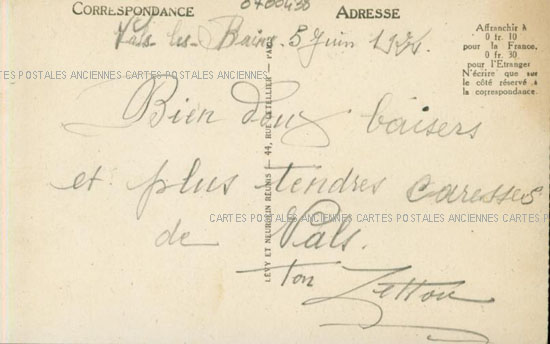 CORRESPONDANCE
0700430
ADRESSE
Vals-les-Bains. 5 Juin
Affranchir à
0 fr. 10
pour la France,
0 fr. 30
pour l'Etranger
N'écrire que sur
le côté réservé à
la correspondance.
CARTES POSTALES ANCIENNES CARTES POSTALES ANCIENNES CARTES POSTALES ANCIENNES CARTES POSTALES ANCIENNES
Bien doux baisers
et plus tendres caresses
CARTES POSTALES ANCIENNES CARTES POSTALES ANCIENNES CARTES POS
de Vals.
ton
LÉVY ET NEURDEIN RÉUNIS — 44, RUE LETELLIER — PARIS